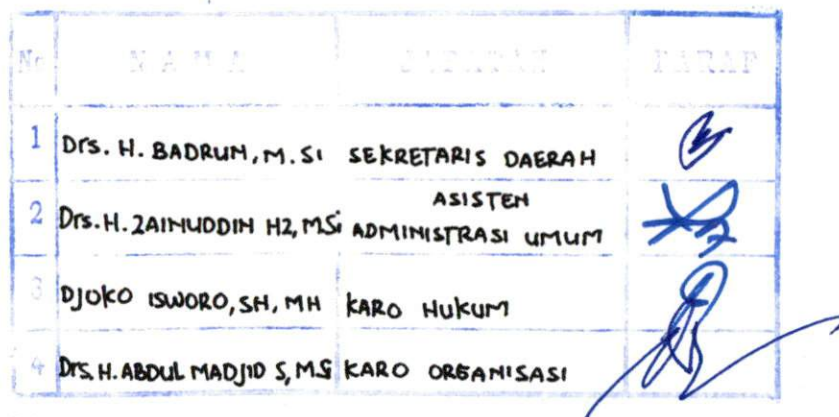 No NAMA JABATAN PARAF
1 Drs. H. BADRUN, M. Si SEKRETARIS DAERAH
2 Drs. H. ZAINUDDIN HZ, MSi ASISTEN
ADMINISTRASI UMUM
3 DJOKO ISWORO, SH, MH KARO HUKUM
4 Drs. H. ABDUL MADJID S, MSi KARO ORGANISASI